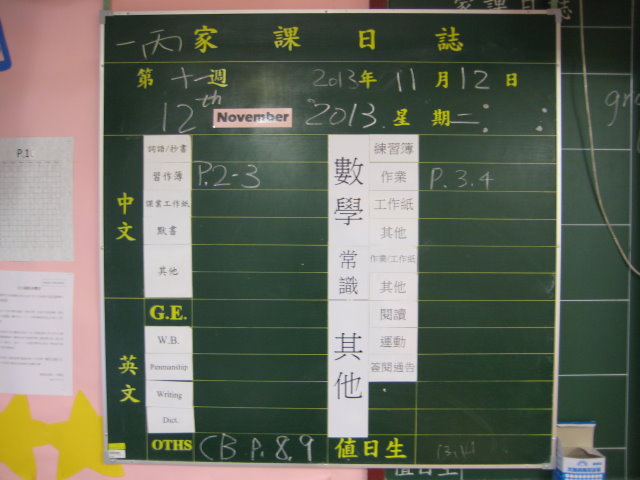 一丙 家課日誌
第十一週 2013年 11月12日
12th November 2013 星期二
中文
詞語/抄書
習作簿 P.2-3
課業工作紙
默書
其他
英文
G.E.
W.B.
Penmanship
Writing
Dict.
OTHS CB P.8,9
數學
練習簿
作業 P.3.4
工作紙
其他
常識
作業/工作紙
其他
其他
閱讀
運動
簽閱通告
值日生
家課日誌
值日生
P.1